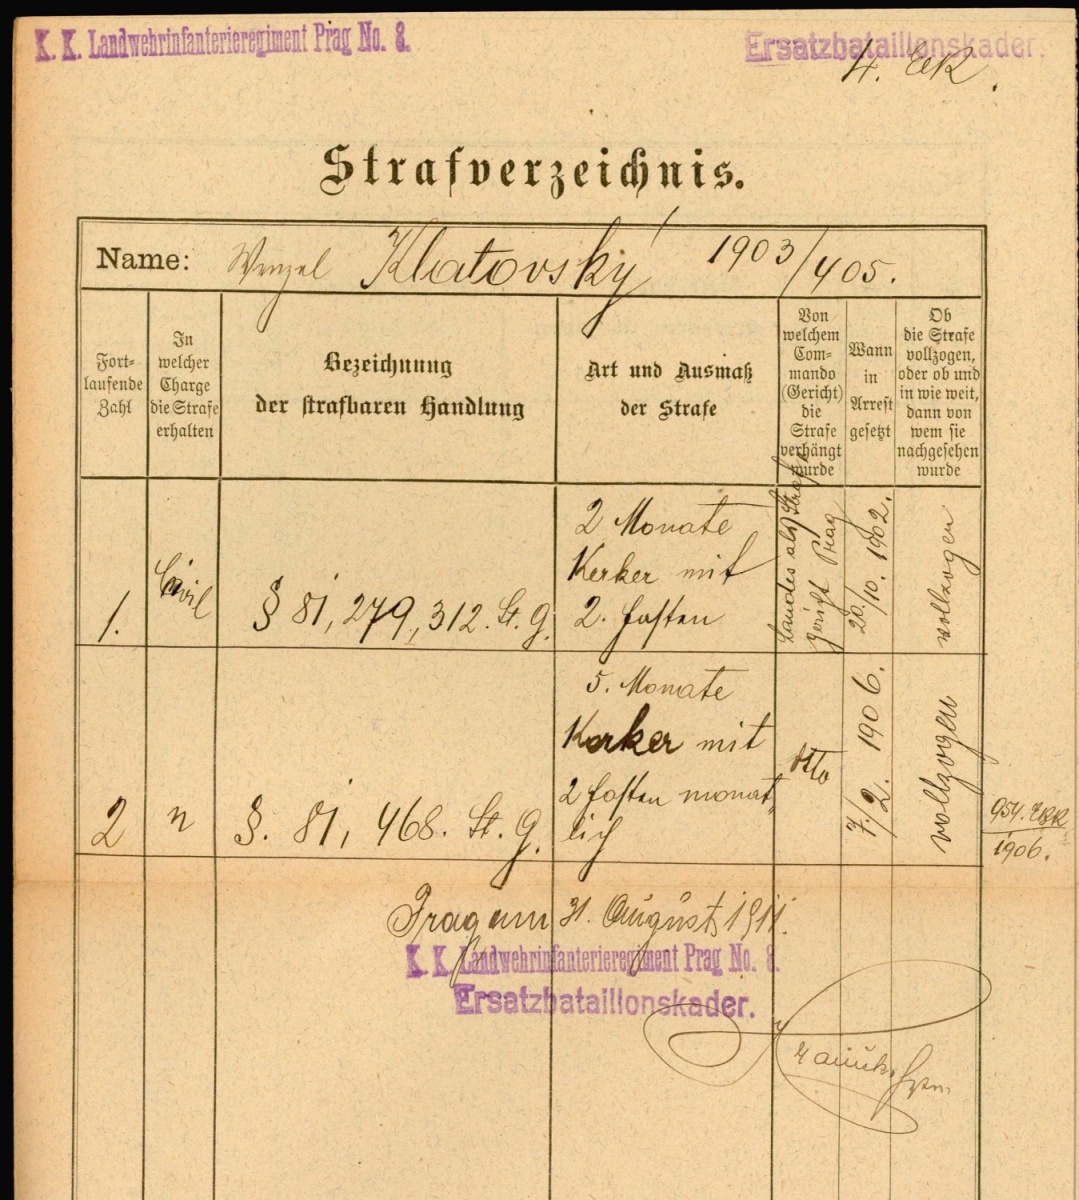 K. K. Landwehrinfanterieregiment Prag No. 8.
Ersatzbataillonskader.
4. EK
Strafverzeichnis.
Name: Wenzel Klatovský 1903/405.
Fort-
laufende
Zahl
In
welcher
Charge
die Strafe
erhalten
Bezeichnung
der strafbaren Handlung
Art und Ausmaß
der Strafe
Von
welchem
Com-
mando
(Gericht)
die
Strafe
verhängt
wurde
Wann
in
Arrest
gesetzt
Ob
die Strafe
vollzogen,
oder ob und
in wie weit,
dann von
wem sie
nachgesehen
wurde
1.
Civil
§ 81, 279, 312. St. g.
2 Monate
Kerker mit
2. fasten
Landes als Straf
gericht Prag
20./10. 1902.
vollzogen
2
n
§. 81, 468. St. g.
5. Monate
Kerker mit
2 fasten monat„
lich
dtto
7./2. 1906.
vollzogen
954. EKK
1906.
Prag am 31. August 1911.
K. K. Landwehrinfanterieregiment Prag No. 8.
Ersatzbataillonskader.